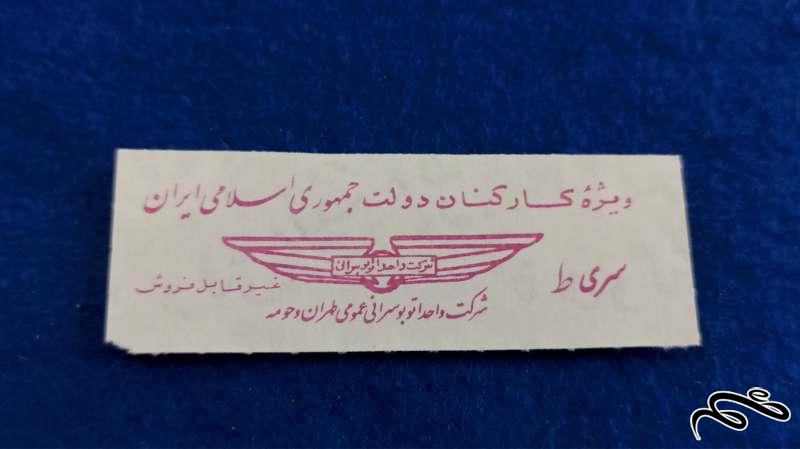 ویژهٔ کارکنان دولت جمهوری اسلامی ایران
سری ط
شرکت واحد اتوبوسرانی
غیر قابل فروش
شرکت واحد اتوبوسرانی عمومی طهران و حومه